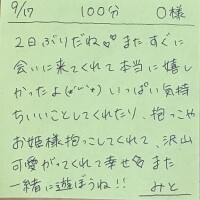 9/17 100分 O様
2日ぶりだね♡ またすぐに
会いに来てくれて本当に嬉し
かったよ(*´˘`*) いっぱい気持
ちいいことしてくれたり、抱っこや
お姫様抱っこしてくれて、沢山
可愛がってくれて幸せ♡ また
一緒に遊ぼうね!!
みと